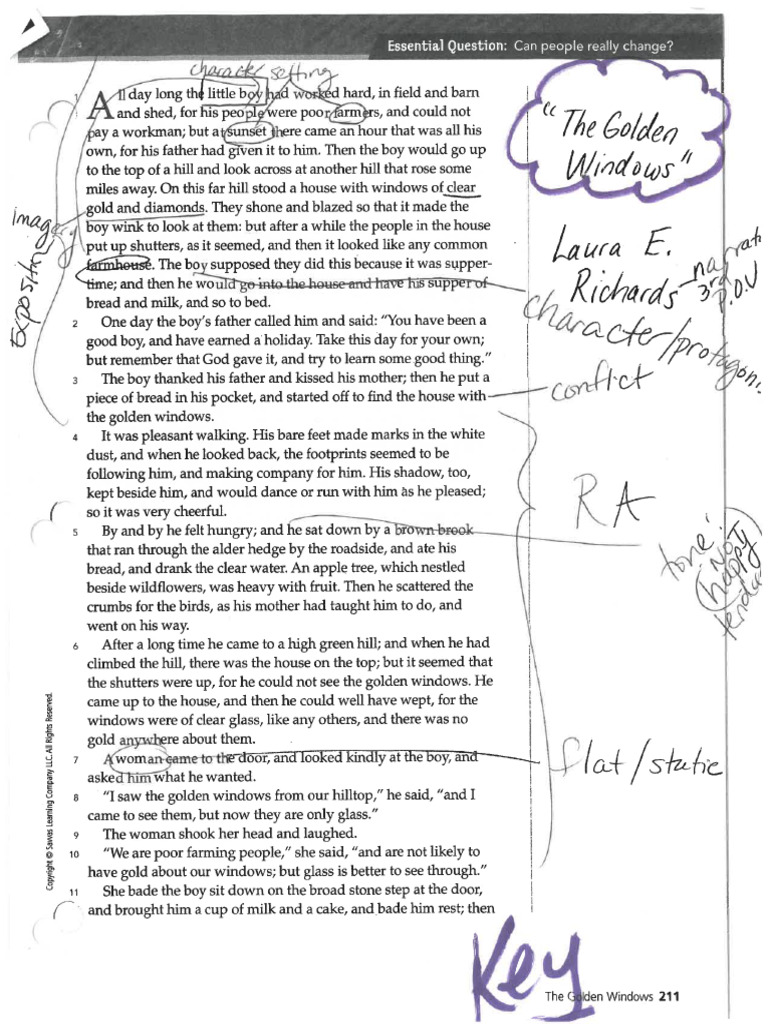 Essential Question: Can people really change?
character setting
"The Golden
Windows"
1 All day long the little boy had worked hard, in field and barn
and shed, for his people were poor farmers, and could not
pay a workman; but at sunset there came an hour that was all his
own, for his father had given it to him. Then the boy would go up
to the top of a hill and look across at another hill that rose some
miles away. On this far hill stood a house with windows of clear
gold and diamonds. They shone and blazed so that it made the
boy wink to look at them: but after a while the people in the house
put up shutters, as it seemed, and then it looked like any common
farmhouse. The boy supposed they did this because it was supper-
time; and then he would go into the house and have his supper of
bread and milk, and so to bed.
imagery
Laura E.
Richards
3rd
P.O.V
character/protagonis
2 One day the boy's father called him and said: "You have been a
good boy, and have earned a holiday. Take this day for your own;
but remember that God gave it, and try to learn some good thing."
3 The boy thanked his father and kissed his mother; then he put a
piece of bread in his pocket, and started off to find the house with
the golden windows.
conflict
4 It was pleasant walking. His bare feet made marks in the white
dust, and when he looked back, the footprints seemed to be
following him, and making company for him. His shadow, too,
kept beside him, and would dance or run with him as he pleased;
so it was very cheerful.
RA
5 By and by he felt hungry; and he sat down by a brown brook
that ran through the alder hedge by the roadside, and ate his
bread, and drank the clear water. An apple tree, which nestled
beside wildflowers, was heavy with fruit. Then he scattered the
crumbs for the birds, as his mother had taught him to do, and
went on his way.
tone:
NOT
happy
6 After a long time he came to a high green hill; and when he had
climbed the hill, there was the house on the top; but it seemed that
the shutters were up, for he could not see the golden windows. He
came up to the house, and then he could well have wept, for the
windows were of clear glass, like any others, and there was no
gold anywhere about them.
7 A woman came to the door, and looked kindly at the boy, and
asked him what he wanted.
flat/static
8 "I saw the golden windows from our hilltop," he said, "and I
came to see them, but now they are only glass."
9 The woman shook her head and laughed.
10 "We are poor farming people," she said, "and are not likely to
have gold about our windows; but glass is better to see through."
11 She bade the boy sit down on the broad stone step at the door,
and brought him a cup of milk and a cake, and bade him rest; then
Copyright © Savvas Learning Company LLC. All Rights Reserved.
Key
The Golden Windows 211